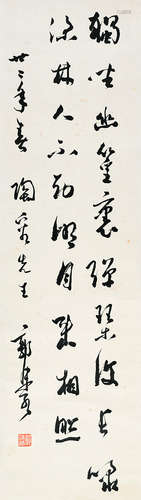 獨坐幽篁裏彈琴復長嘯
深林人不知明月來相照
卅二年春 陶 先生